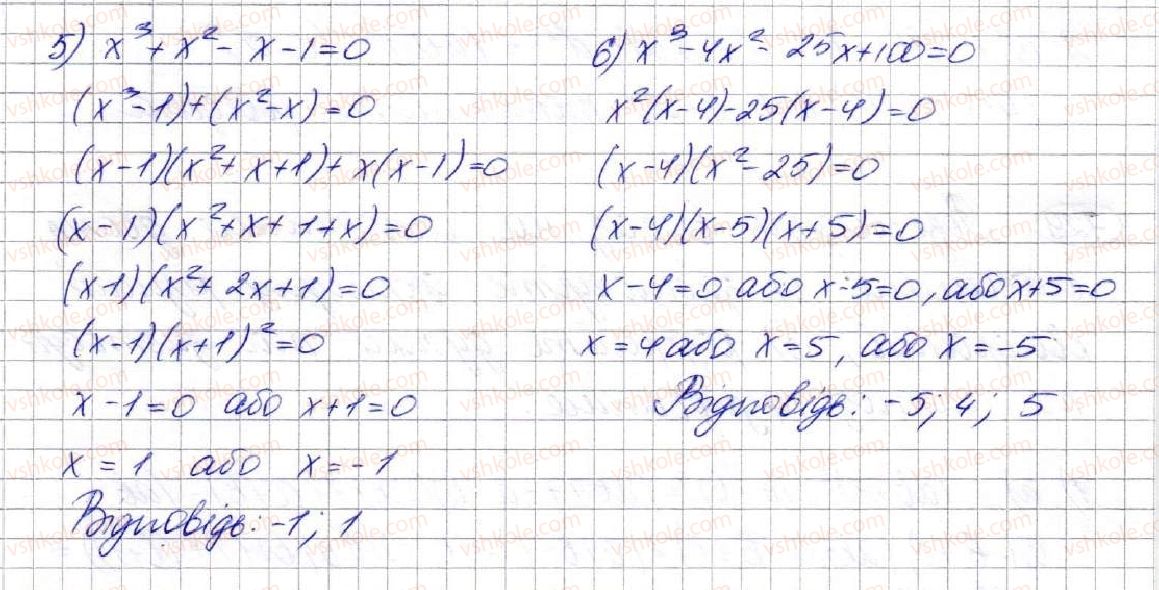 5) x³+x²-x-1=0
(x³-1)+(x²-x)=0
(x-1)(x²+x+1)+x(x-1)=0
(x-1)(x²+x+1+x)=0
(x1)(x²+2x+1)=0
(x-1)(x+1)²=0
x-1=0 або x+1=0
x=1 або x=-1
Відповідь: -1; 1
6) x³-4x²-25x+100=0
x²(x-4)-25(x-4)=0
(x-4)(x²-25)=0
(x-4)(x-5)(x+5)=0
x-4=0 або x-5=0, або x+5=0
x=4 або x=5, або x=-5
Відповідь: -5; 4; 5
vshkole.com